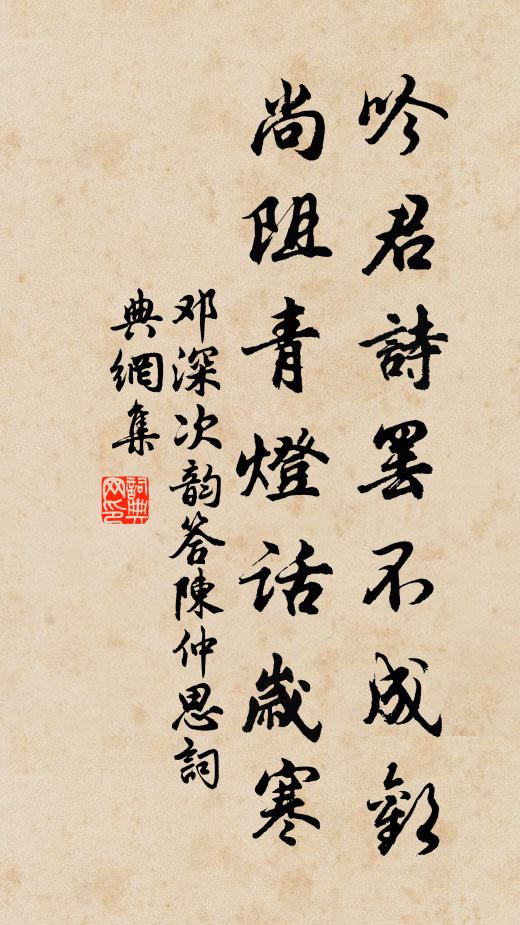 吟君詩罢不成歡
尚阻青燈話歲寒
邓深次韵答陳仲思詞
典網集
詞典
网印